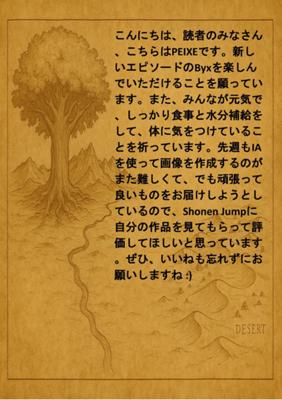 こんにちは、読者のみなさん
、こちらはPEIXEです。新し
いエピソードのByxを楽しん
でいただけることを願ってい
ます。また、みんなが元気で
、しっかり食事と水分補給を
して、体に気をつけているこ
とを祈っています。先週もIA
を使って画像を作成するのが
まだ難しくて、でも頑張って
良いものをお届けしようとし
ているので、Shonen Jumpに
自分の作品を見てもらって評
価してほしいと思っています
。ぜひ、いいねも忘れずにお
願いしますね :)
DESERT